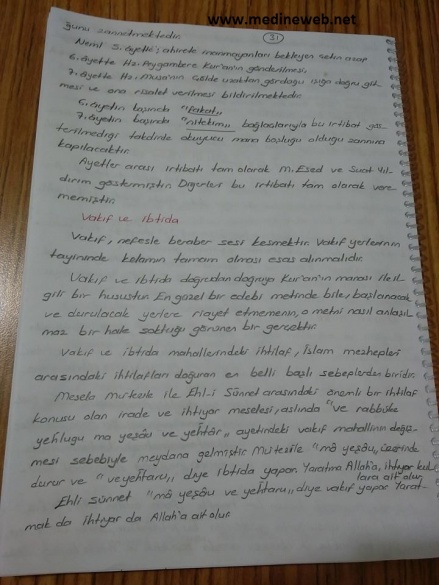 www.medineweb.net
31
ğunu zannetmektedir.
Neml 5. âyetti; ahirete inanmayanları bekleyen çetin azap
6. âyette Hz. Peygambere Kur'an'ın gönderilmesi,
7. âyette Hz. Musa'nın çölde uzaktan gördüğü ışığa doğru git-
mesi ve ona risalet verilmesi bildirilmektedir.
6. âyetin başında "fakat",
7. âyetin başında "nitekim" bağlaçlarıyla bu irtibat gös-
terilmediği takdirde okuyucu mana boşluğu olduğu zannına
kapılacaktır.
Ayetler arası irtibatı tam olarak M. Esed ve Suat Yıl-
dırım göstermiştir. Diğerleri bu irtibatı tam olarak vere-
memiştir.
Vakıf ve ibtida
Vakıf, nefesle beraber sesi kesmektir. Vakıf yerlerinin
tayininde kelamın tamam olması esas alınmalıdır.
Vakıf ve ibtida doğrudan doğruya Kur'an'ın manası ile il-
gili bir husustur. En güzel bir edebi metinde bile, başlanacak
ve durulacak yerlere riayet etmemenin, o metni nasıl anlaşıl-
maz bir hale soktuğu görünen bir gerçektir.
Vakıf ve ibtida mahallerindeki ihtilaf, İslam mezhepleri
arasındaki ihtilafları doğuran en belli başlı sebeplerden biridir.
Mesela Mutezile ile Ehl-i Sünnet arasındaki önemli bir ihtilaf
konusu olan irade ve ihtiyar meselesi, aslında "ve rabbüke
yehlugu ma yeşâu ve yehtâr" ayetindeki vakıf mahallinin değiş-
mesi sebebiyle meydana gelmiştir. Mutezile "mâ yeşâu" üzerinde
durur ve "veyehtaru" diye ibtida yapar. Yaratma Allah'a, ihtiyar kul
lara ait olur.
Ehli sünnet "mâ yeşâu ve yehtaru" diye vakıf yapar. Yarat-
mak da ihtiyar da Allah'a ait olur.